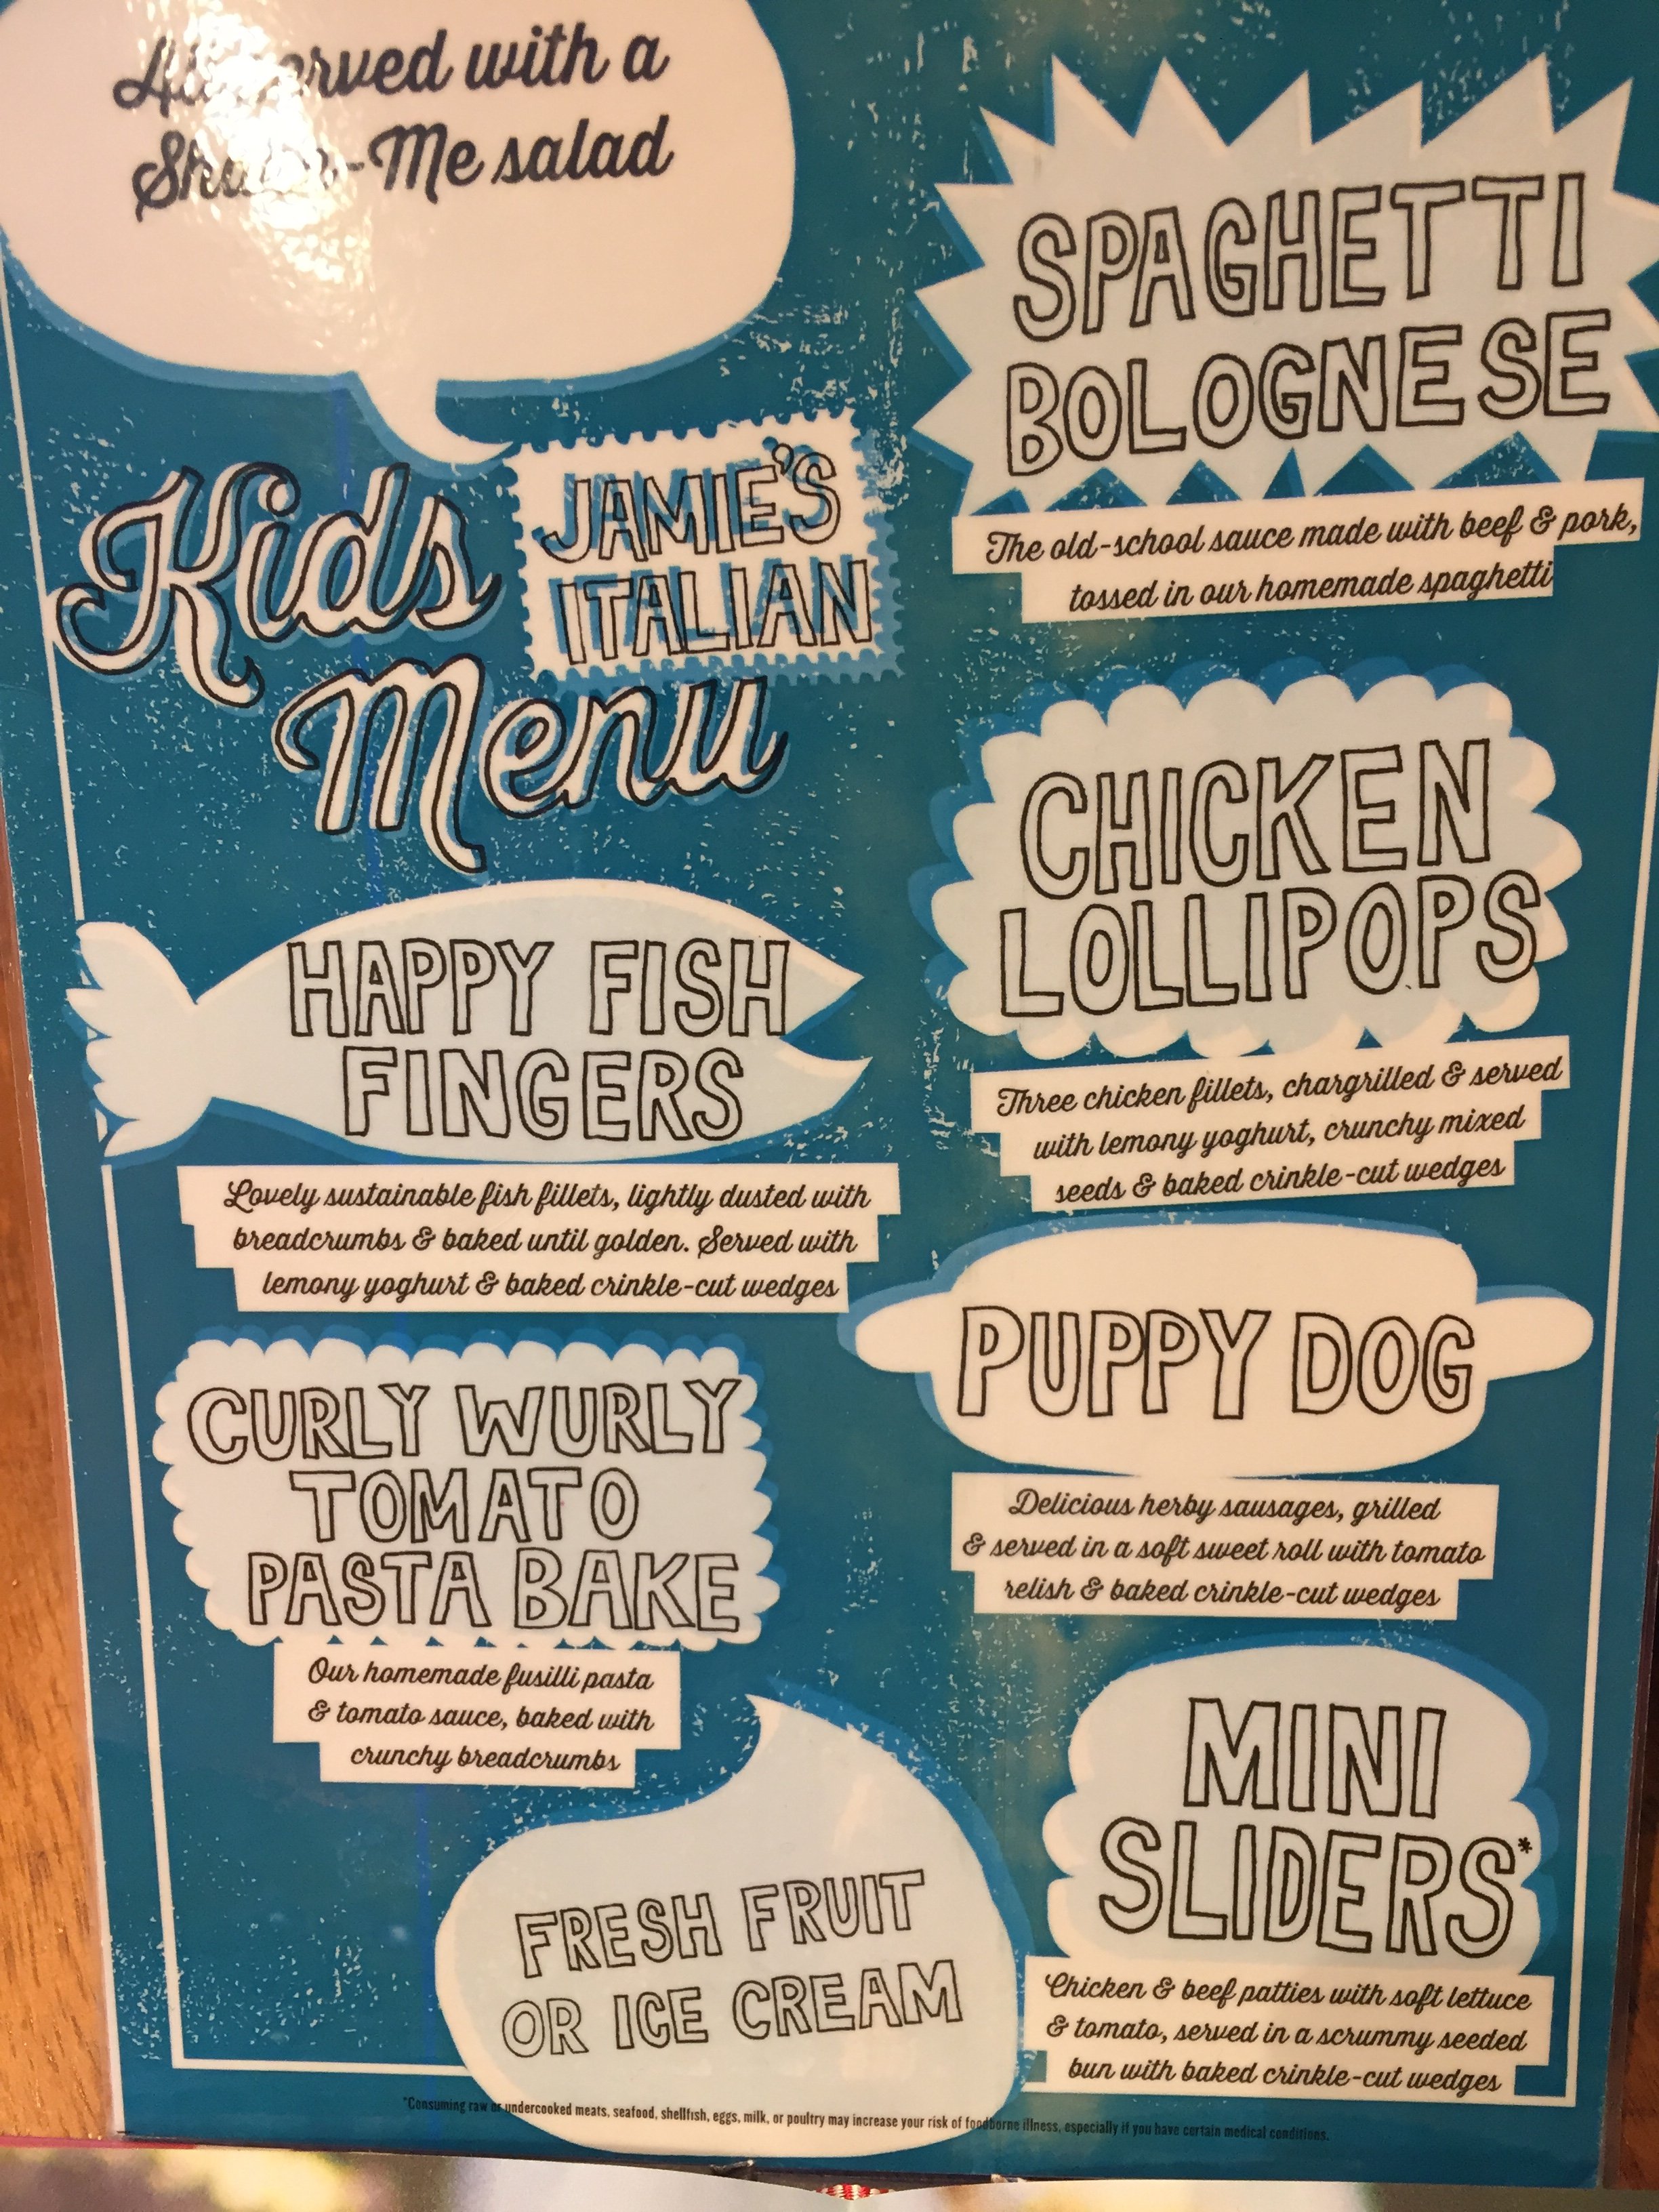 All served with a
Shake-Me salad
Kids
JAMIE'S
ITALIAN
Menu
HAPPY FISH
FINGERS
Lovely sustainable fish fillets, lightly dusted with
breadcrumbs & baked until golden. Served with
lemony yoghurt & baked crinkle-cut wedges
CURLY WURLY
TOMATO
PASTA BAKE
Our homemade fusilli pasta
& tomato sauce, baked with
crunchy breadcrumbs
SPAGHETTI
BOLOGNESE
The old-school sauce made with beef & pork,
tossed in our homemade spaghetti
CHICKEN
LOLLIPOPS
Three chicken fillets, chargrilled & served
with lemony yoghurt, crunchy mixed
seeds & baked crinkle-cut wedges
PUPPY DOG
Delicious herby sausages, grilled
& served in a soft sweet roll with tomato
relish & baked crinkle-cut wedges
MINI
SLIDERS*
Chicken & beef patties with soft lettuce
& tomato, served in a scrummy seeded
bun with baked crinkle-cut wedges
FRESH FRUIT
OR ICE CREAM
*Consuming raw or undercooked meats, seafood, shellfish, eggs, milk, or poultry may increase your risk of foodborne illness, especially if you have certain medical conditions.